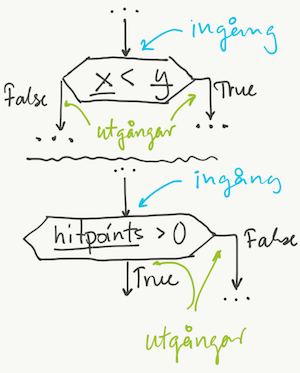 ...
ingång
x < y
False
True
utgångar
... ...
...
ingång
hitpoints > 0
False
True
...
utgångar